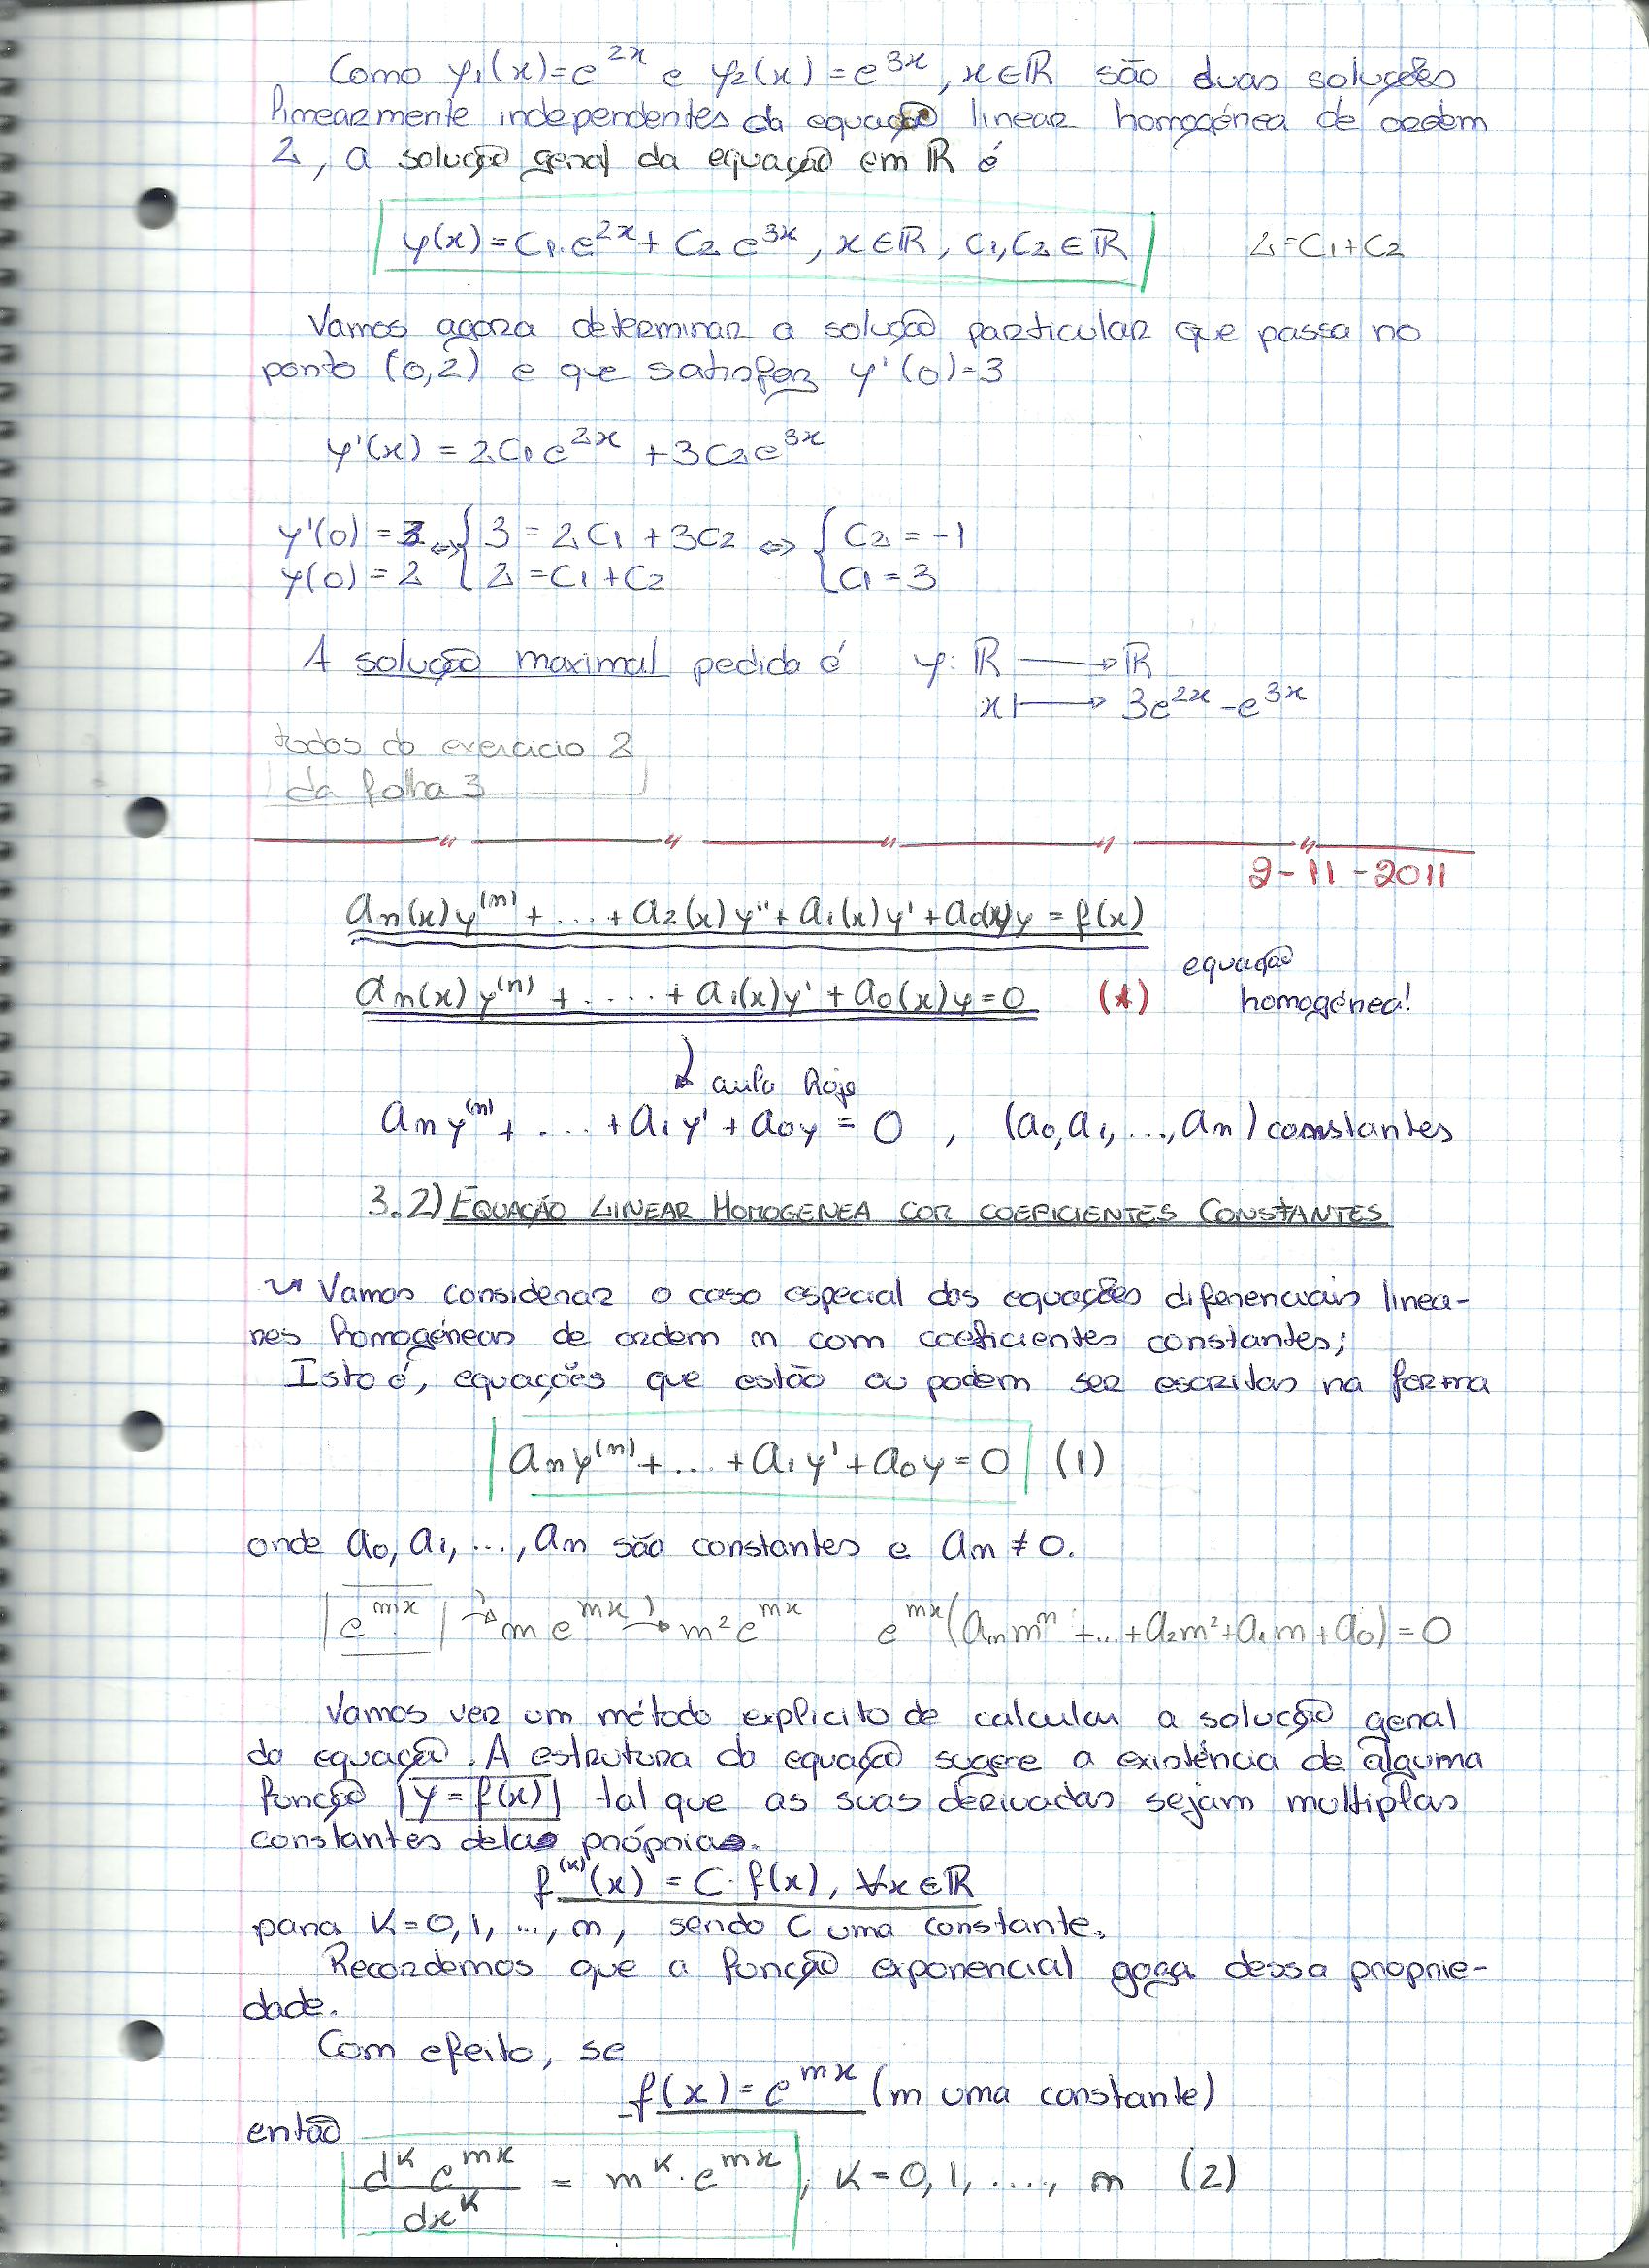 Como y₁(x)=e^{2x} e y₂(x)=e^{3x}, x∈ℝ são duas soluções
linearmente independentes da equação linear homogénea de ordem
2, a solução geral da equação em ℝ é
y(x)=C₁.e^{2x}+C₂ e^{3x}, x∈ℝ, C₁,C₂∈ℝ 2=C₁+C₂
Vamos agora determinar a solução particular que passa no
ponto (0,2) e que satisfaz y'(0)=3
y'(x) = 2C₁e^{2x} + 3C₂e^{3x}
y'(0) = 3 ⇔ { 3 = 2C₁ + 3C₂ ⇔ { C₂ = -1
y(0) = 2 { 2 = C₁ + C₂ { C₁ = 3
A solução maximal pedida é y: ℝ ⟶ ℝ
x ⟼ 3e^{2x} - e^{3x}
todos do exercicio 2
da folha 3
2-11-2011
aₙ(x)y^{(n)} + ... + a₂(x)y'' + a₁(x)y' + a₀(x)y = f(x)
aₙ(x)y^{(n)} + ..... + a₁(x)y' + a₀(x)y = 0 (*) equação
homogénea!
↓ aula hoje
aₙy^{(n)} + ... + a₁y' + a₀y = 0 , (a₀,a₁,...,aₙ) constantes
3.2) EQUAÇÃO LINEAR HOMOGENEA COR COEFICIENTES CONSTANTES
↝ Vamos considerar o caso especial das equações diferenciais linea-
res homogéneas de ordem n com coeficientes constantes;
Isto é, equações que estão ou podem ser escritas na forma
aₙy^{(n)} + ... + a₁y' + a₀y = 0 (1)
onde a₀, a₁, ..., aₙ são constantes e aₙ ≠ 0.
e^{mx} →' m e^{mx} →' m²e^{mx} e^{mx}(aₙmⁿ + ... + a₂m² + a₁m + a₀) = 0
Vamos ver um método explicito de calcular a solução geral
da equação. A estrutura da equação sugere a existência de alguma
função y = f(x) tal que as suas derivadas sejam multiplas
constantes dela própria.
f^{(k)}(x) = C. f(x), ∀x∈ℝ
para K=0,1,...,n, sendo C uma constante.
Recordemos que a função exponencial goza dessa proprie-
dade.
Com efeito, se
f(x) = e^{mx} (m uma constante)
então
d^k e^{mx} / dx^k = m^k . e^{mx}, K=0,1,...., n (2)